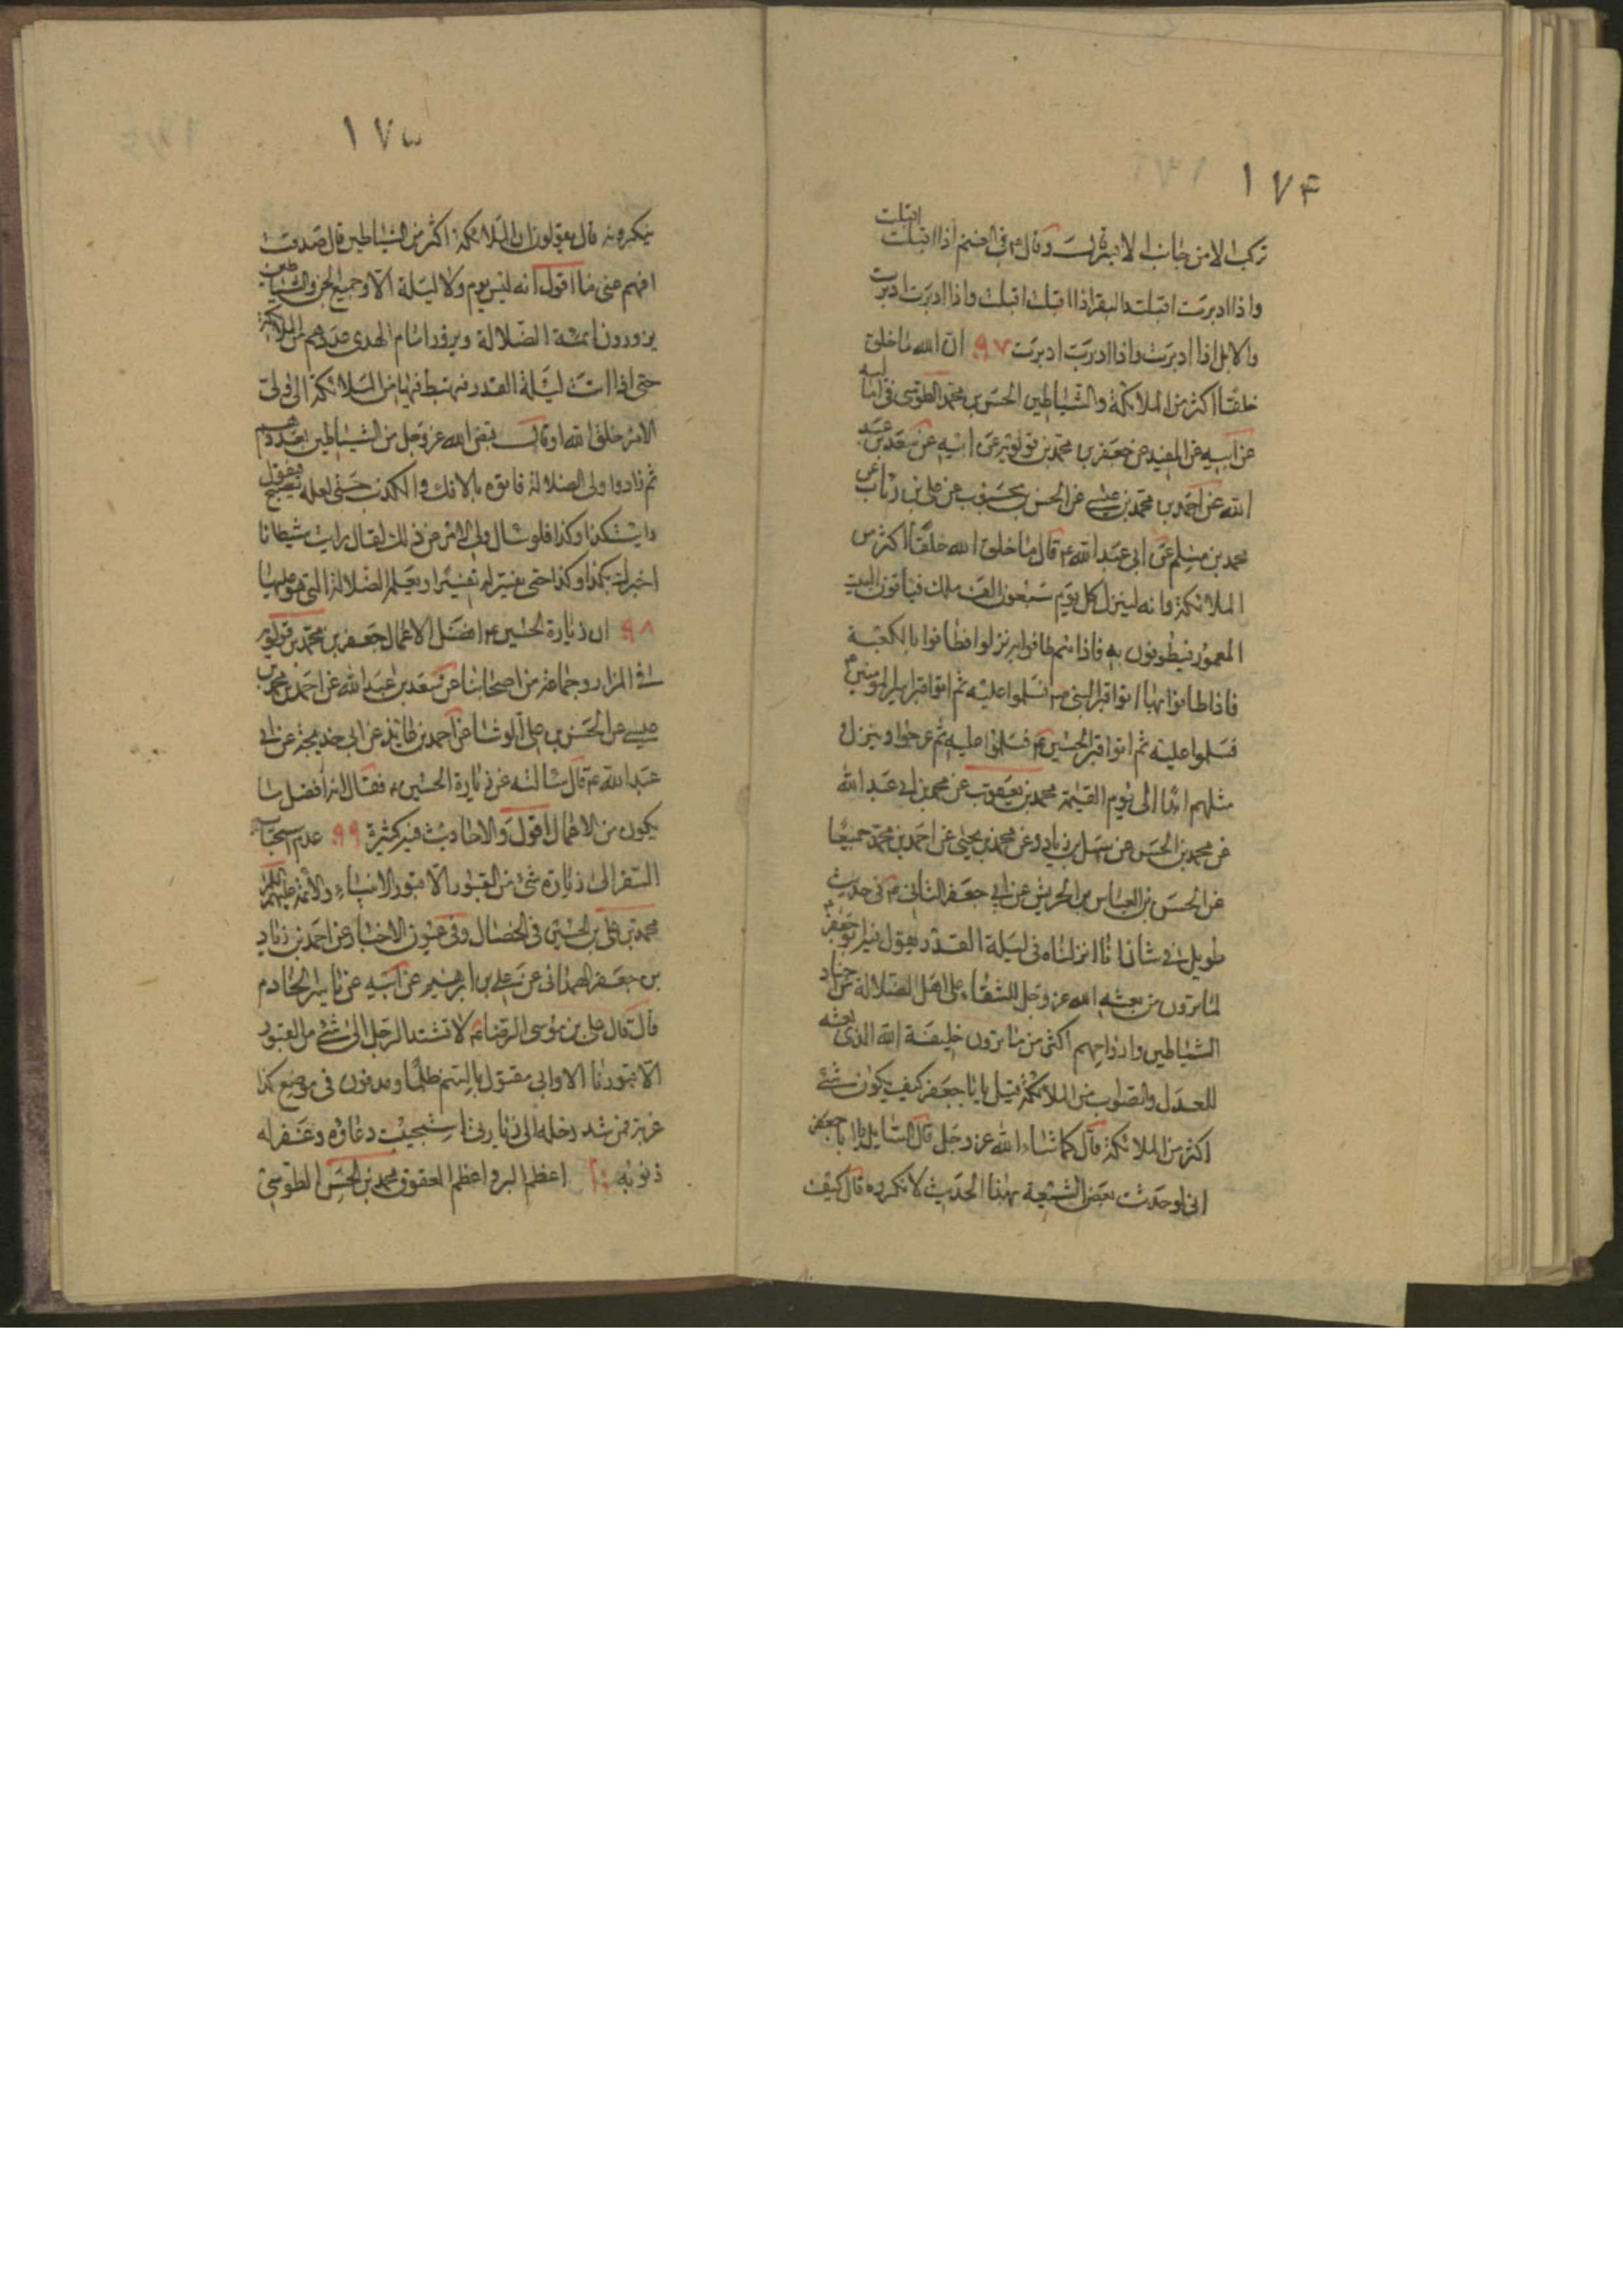 ١٧٤
تركب الا من جانبها الايسر لت وقال ع في الغنم اذا اقبلت اقبلت
واذا ادبرت اقبلت والبقر اذا اقبلت اقبلت واذا ادبرت ادبرت
والابل اذا ادبرت واذا ادبرت ادبرت ٩٧ ان الله ما خلق
خلقا اكثر من الملائكة والشياطين الحسن بن محمد الطوسي في اماليه
عن ابيه عن المفيد عن جعفر بن محمد بن قولويه عن ابيه عن سعد بن عبد
الله عن احمد بن محمد بن عيسى عن الحسن بن محبوب عن علي بن رئاب عن
محمد بن مسلم عن ابي عبد الله ع قال ما خلق الله خلقا اكثر من
الملائكة وانه لينزل كل يوم سبعون الف ملك فيأتون البيت
المعمور فيطوفون به فاذا هم طافوا به نزلوا فطافوا بالكعبة
فاذا طافوا بها اتوا قبر النبي ص فسلموا عليه ثم اتوا قبر امير المؤمنين ع
فسلموا عليه ثم اتوا قبر الحسين ع فسلموا عليه ثم عرجوا وينزل
مثلهم ابدا الى يوم القيمة محمد بن يعقوب عن محمد بن ابي عبد الله
عن محمد بن الحسن عن سهل بن زياد وعن محمد بن يحيى عن احمد بن محمد جميعا
عن الحسن بن العباس بن الحريش عن ابي جعفر الثاني ع في حديث
طويل في شان انا انزلناه في ليلة القدر يقول فيه ابو جعفر ع
لما ترون من بعثه الله عز وجل للشقاء على اهل الضلالة من اجناد
الشياطين وازواجهم اكثر من ما ترون خليفة الله الذي بعثه
للعدل والصواب من الملائكة قيل يا ابا جعفر كيف يكون شئ
اكثر من الملائكة قال كما شاء الله عز وجل قال السايل يا ابا جعفر
اني لو حدثت بعض الشيعة بهذا الحديث لانكروه قال كيف
١٧٥
ينكرونه قال يقولون ان الملائكة اكثر من الشياطين قال صدقت
افهم عني ما اقول انه ليس يوم ولا ليلة الا وجميع الجن والشياطين
يزورون ائمة الضلالة ويزور امام الهدى عددهم من الملائكة
حتى اذا اتت ليلة القدر فيهبط فيها من الملائكة الى ولي
الامر خلق الله او قال قيض الله عز وجل من الشياطين بعددهم
ثم زاروا ولي الضلالة فاتوه بالافك والكذب حتى لعله يصبح فيقول
رايت كذا وكذا فلو سال ولي الامر عن ذلك لقال رايت شيطانا
اخبرك بكذا وكذا حتى يفسر له تفسيرا ويعلمه الضلالة التي هو عليها
٩٨ ان زيارة الحسين ع افضل الاعمال جعفر بن محمد بن قولويه
في المزار وجماعة من اصحابنا عن سعد بن عبد الله عن احمد بن محمد بن
عيسى عن الحسن بن علي الوشا عن احمد بن عائذ عن ابي خديجة عن ابي
عبد الله ع قال سالته عن زيارة الحسين ع فقال انه افضل ما
يكون من الاعمال اقول والاحاديث فيه كثيرة ٩٩ عدم استحباب
السفر الى زيارة شئ من القبور الا قبور الانبياء والائمة عليهم السلام
محمد بن علي بن الحسين في الخصال وفي عيون الاخبار عن احمد بن زياد
بن جعفر الهمداني عن علي بن ابرهيم عن ابيه عن ياسر الخادم
قال قال علي بن موسى الرضا ع لا تشتد الرحال الى شئ من القبور
الا قبورنا الا واني مقتول بالسم ظلما ومدفون في موضع كذا
غربة فمن شد رحله الى زيارتي استجيب دعاؤه وغفر له
ذنوبه اعظم البر واعظم العقوق محمد بن الحسن الطوسي